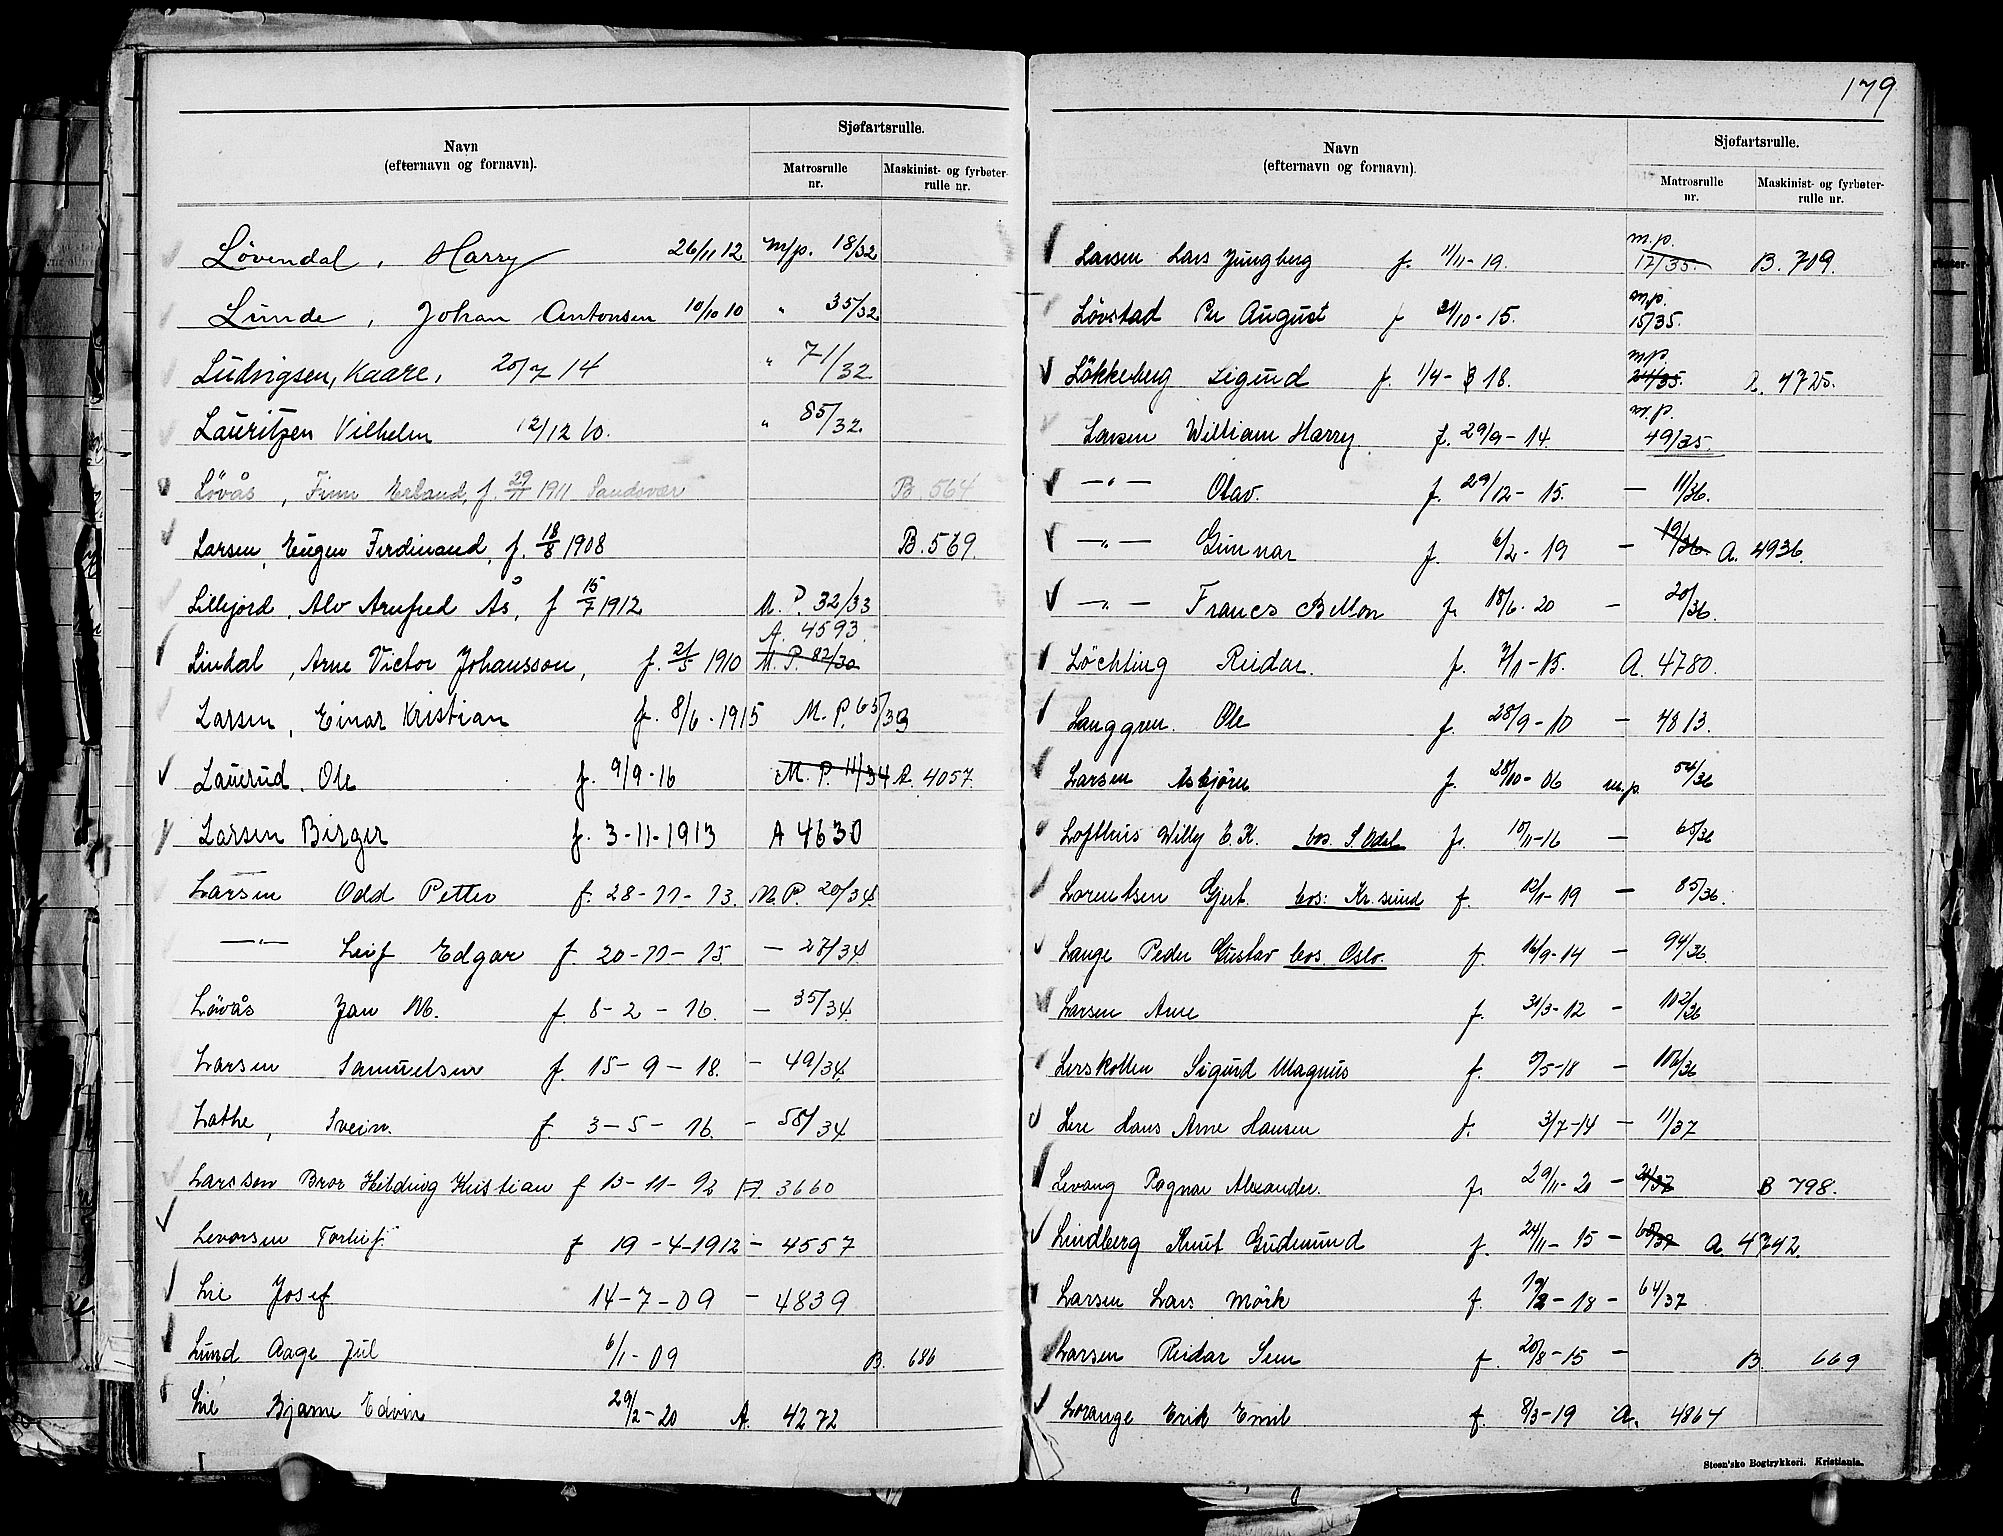 Navn
(efternavn og fornavn).
Sjøfartsrulle.
Matrosrulle
nr.
Maskinist- og fyrbøter-
rulle nr.
Løvendal, Harry 26/11 12 M/p. 18/32
Lunde, Johan Antonsen 10/10 10 " 35/32
Ludvigsen, Kaare, 20/7 14 " 71/32
Lauritzen Vilhelm 12/12 10. " 85/32.
Løvås, Finn Erland, f. 1911 Sandsvær B 564
Larsen, Eugen Ferdinand, f. 18/8 1908 B. 569
Lillejord, Alv Arnfred Ås, f 15/7 1912 M. P. 32/33
A. 4593.
Lindal, Arne Victor Johansson, f. 21/5 1910 M. P. 82/30
Larsen, Einar Kristian f. 8/6 - 1915 M. P. 65/33
Lauerud. Ole f. 9/9-16 M. P. 11/34 A. 4057.
Larsen Birger f. 3-11-1913 A 4630
Larsen Odd Petter f. 28-11-13. M. P. 20/34.
—"— Leif Edgar f. 20-11-15. — 27/34
Løvås Jan M. f. 8-2-16. — 35/34.
Larsen Samuelsen f. 15-9-18. — 49/34.
Lothe, Svein. f. 3-5-16. - 58/34
Larssen Bror Hilding Kristian f 13-11-92 A. 3660
Levorsen Torleif f 19-4-1912 - 4557
Lie Josef 14-7-09 - 4839
Lund Aage Jul 6/1-09 B. 686
Lie Bjarne Edvin 29/2-20 A. 4272
179
Navn
(efternavn og fornavn).
Sjøfartsrulle.
Matrosrulle
nr.
Maskinist- og fyrbøter-
rulle nr.
m.p.
Larsen Lars Jungberg f. 11/11-19. 12/35. B. 709.
m.p.
Løvstad Per August f 21/10-15. 15/35.
m.p.
Løkkeberg Sigurd f. 1/4-18. 21/35. 4725.
m.p.
Larsen William Harry f. 29/9-14. 49/35.
—"— Olav. f. 29/12-15. — 11/36.
—"— Gunnar f. 6/2-19 — 19/36 A. 4936.
—"— Francs Bellon f. 18/6-20 — 20/36.
Løchting Reidar. f. 7/1-15. A. 4780.
Langgren. Ole f. 28/9-10 — 4813.
Larsen Asbjørn f. 28/10-06 m.p. 54/36
Lofthus Willy E. K. bos. S. Odal f. 10/11-16 — 65/36
Lorentsen Gjert. bos: Kr. sund f. 12/1-19 — 85/36.
Lange Peder Gustav bos. Oslo. f. 16/9-14 — 94/36.
Larsen Arne f. 31/3-12 — 102/36
Lerskollen Sigurd Magnus f. 5/5-18 — 106/36
Lere Hans Arne Hansen f. 3/7-14 — 11/37
Levang Ragnar Alexander. f. 29/11-20 — 21/37 B 798.
Lindberg Knut Gudmund f. 24/11-15 — 60/37 A 4742.
Larsen Lars Mørk f. 18 — 64/37
Larsen Reidar Sem f. 20/8-15 — B. 669
Lorange Erik Emil f. 8/3-19 A. 4864
Steen'ske Bogtrykkeri. Kristiania.